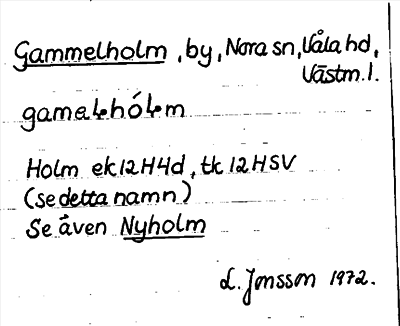 Gammelholm, by, Nora sn, Våla hd,
Västm. l.
gamelhólm
Holm ek 12H4d, tk 12HSV
(se detta namn)
Se även Nyholm
L. Jonsson 1972.